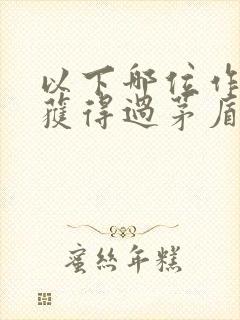 以下哪位作
獲得過茅盾
蜜絲年糕